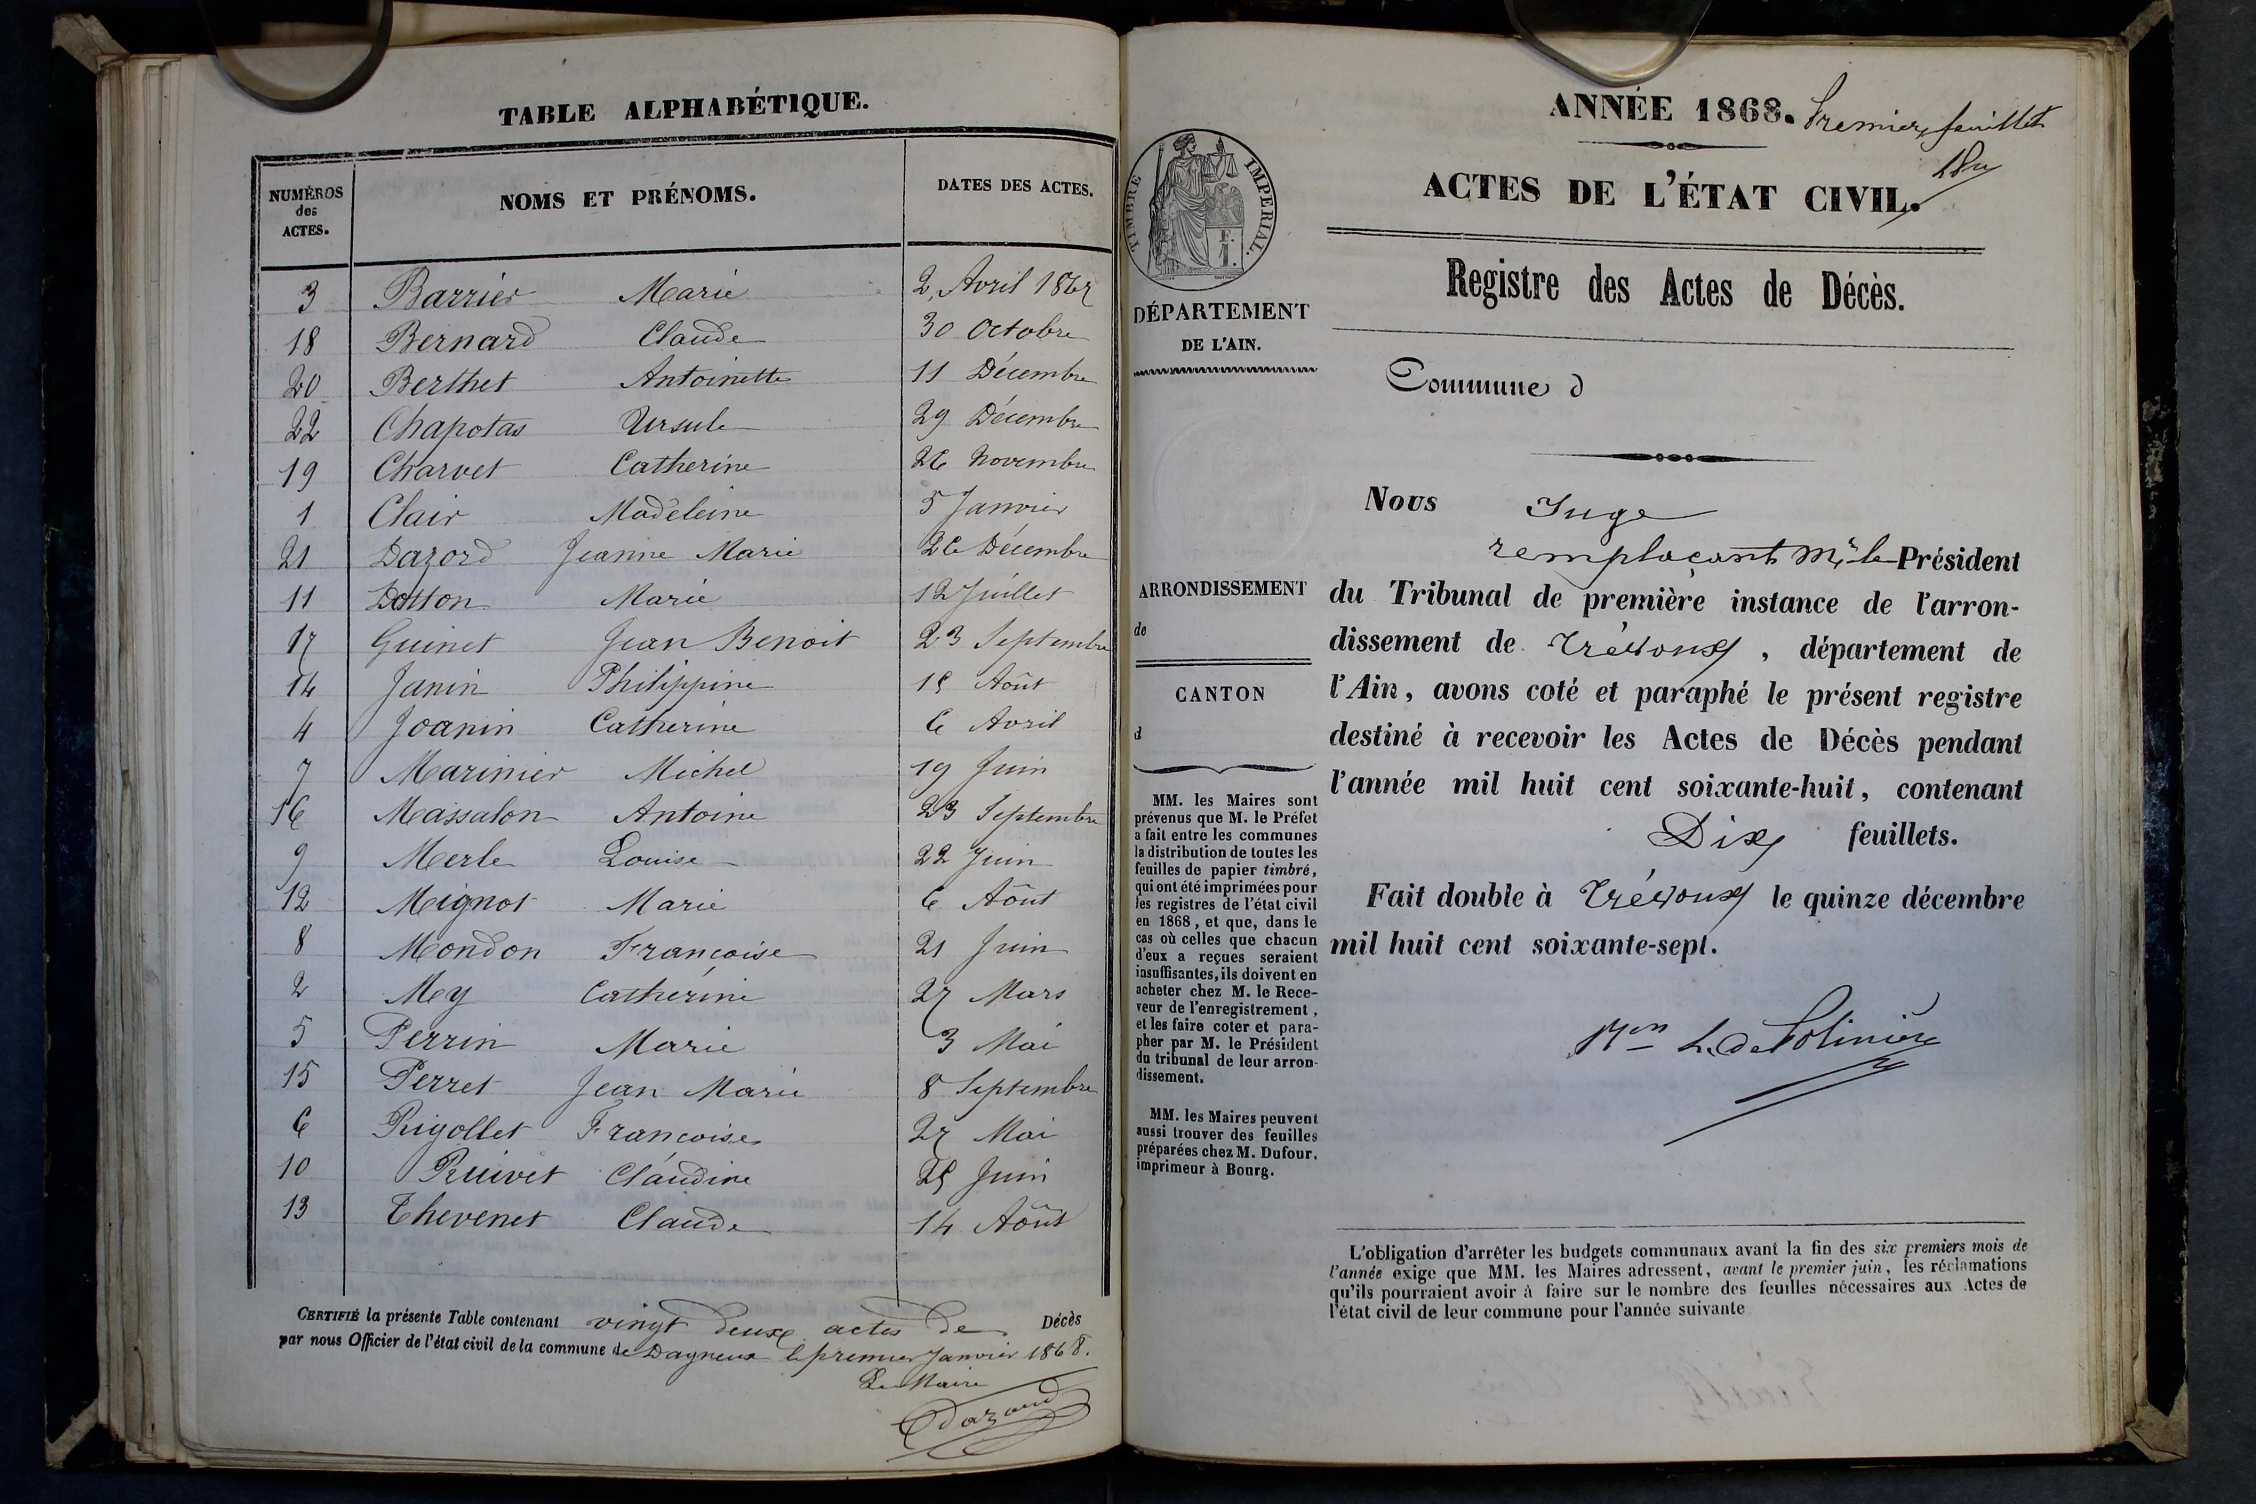 TABLE ALPHABÉTIQUE.
NUMÉROS des ACTES. NOMS ET PRÉNOMS. DATES DES ACTES.
3 Barrier Marie 2 Avril 1867
18 Bernard Claude 30 Octobre
20 Berthet Antoinette 11 Décembre
22 Chapotas Ursule 29 Décembre
19 Charvet Catherine 26 Novembre
1 Clair Madeleine 5 Janvier
21 Dazord Jeanne Marie 26 Décembre
11 Dotton Marie 12 Juillet
17 Guinet Jean Benoit 23 Septembre
14 Janin Philippine 15 Août
4 Joanin Catherine 6 Avril
7 Marinier Michel 19 Juin
16 Massalon Antoine 23 Septembre
9 Merle Louise 22 Juin
12 Mignot Marie 6 Août
8 Mondon Françoise 21 Juin
2 Mey Catherine 27 Mars
5 Perrin Marie 3 Mai
15 Perret Jean Marie 8 Septembre
6 Rigollet Françoise 27 Mai
10 Ruivet Claudine 25 Juin
13 Thevenet Claude 14 Août
CERTIFIÉ la présente Table contenant vingt deux actes de Décès
par nous Officier de l'état civil de la commune de Dagneux le premier Janvier 1868.
Le Maire
Dazord
ANNÉE 1868. Premier feuillet
ACTES DE L'ÉTAT CIVIL.
Registre des Actes de Décès.
TIMBRE IMPÉRIAL.
F.
1.
DÉPARTEMENT
DE L'AIN.
ARRONDISSEMENT
de
CANTON
d
MM. les Maires sont
prévenus que M. le Préfet
a fait entre les communes
la distribution de toutes les
feuilles de papier timbré,
qui ont été imprimées pour
les registres de l'état civil
en 1868, et que, dans le
cas où celles que chacun
d'eux a reçues seraient
insuffisantes, ils doivent en
acheter chez M. le Rece-
veur de l'enregistrement,
et les faire coter et para-
pher par M. le Président
du tribunal de leur arron-
dissement.
MM. les Maires peuvent
aussi trouver des feuilles
préparées chez M. Dufour,
imprimeur à Bourg.
Commune d
Nous Juge
remplaçant Mr le Président
du Tribunal de première instance de l'arron-
dissement de Trévoux, département de
l'Ain, avons coté et paraphé le présent registre
destiné à recevoir les Actes de Décès pendant
l'année mil huit cent soixante-huit, contenant
Dix feuillets.
Fait double à Trévoux le quinze décembre
mil huit cent soixante-sept.
L'obligation d'arrêter les budgets communaux avant la fin des six premiers mois de
l'année exige que MM. les Maires adressent, avant le premier juin, les réclamations
qu'ils pourraient avoir à faire sur le nombre des feuilles nécessaires aux Actes de
l'état civil de leur commune pour l'année suivante